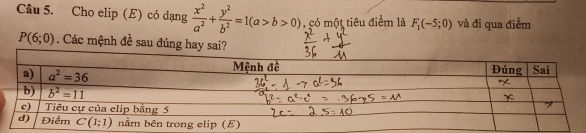 Câu 5. Cho elip (E) có dạng x²/a² + y²/b² = 1(a > b > 0), có một tiêu điểm là F₁(−5;0) và đi qua điểm
P(6;0). Các mệnh đề sau đúng hay sai?
x²/36 + y²/11
Mệnh đề Đúng Sai
a) a² = 36 36/a² = 1 → a² = 36 x
b) b² = 11 b² = a² - c² = 36 - 25 = 11 x
c) Tiêu cự của elip bằng 5 2c = 2.5 = 10 x
d) Điểm C(1;1) nằm bên trong elip (E)